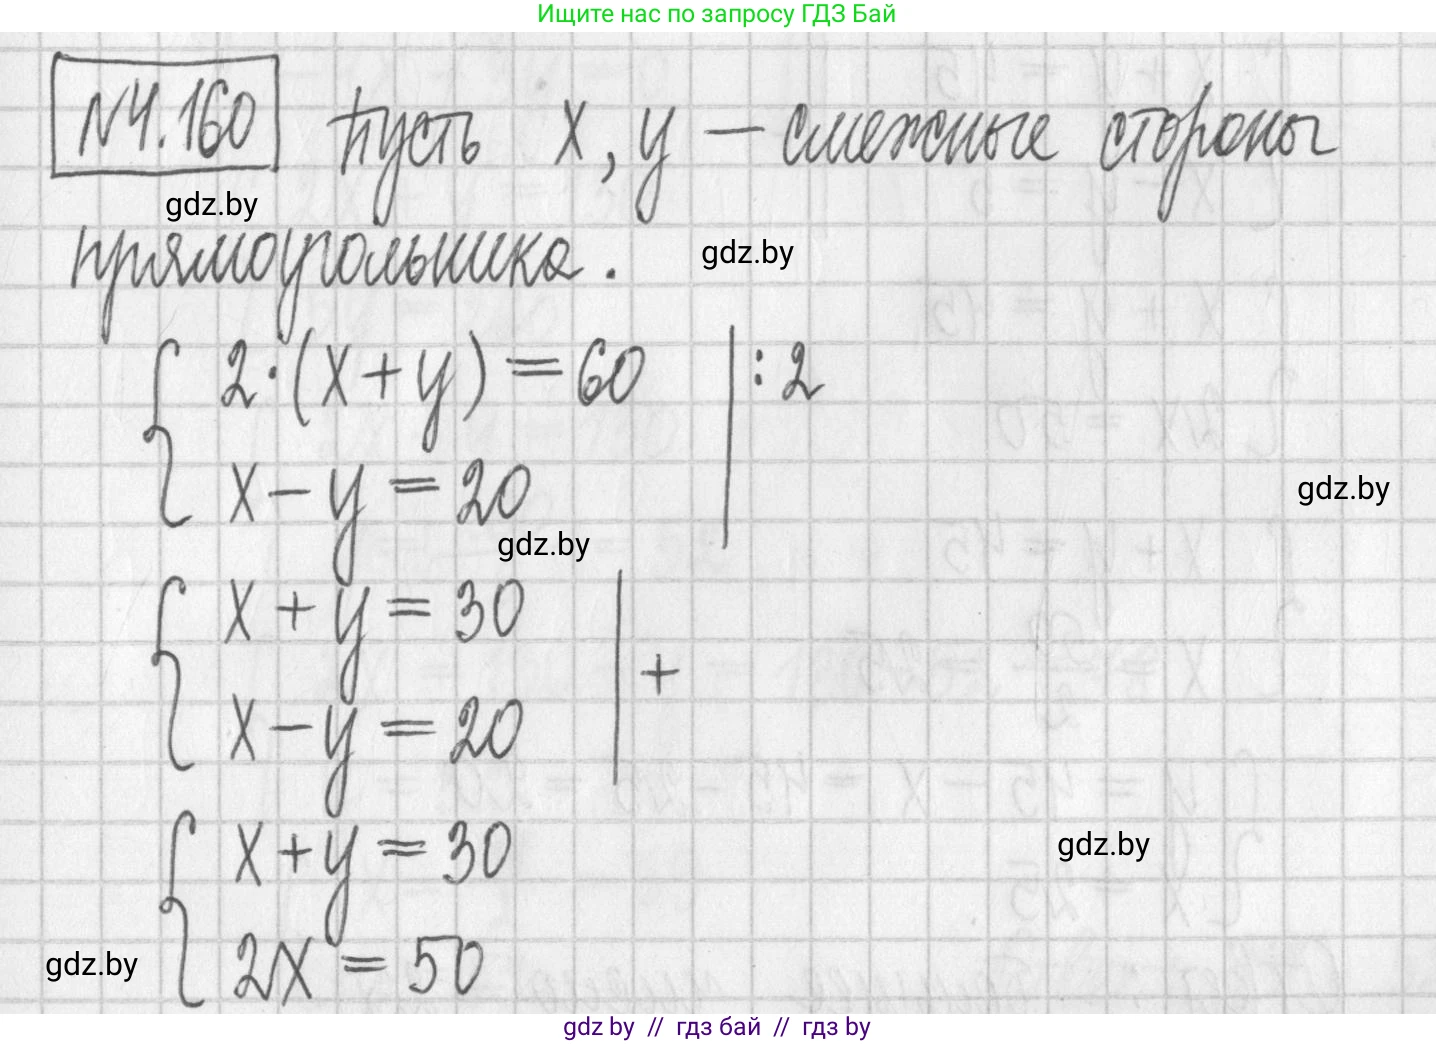 Ищите нас по запросу ГДЗ Бай
№4.160 Пусть x, y — смежные стороны
gdz.by
прямоугольника.
gdz.by
2·(x+y) = 60 | :2
x − y = 20
gdz.by
gdz.by
x + y = 30
x − y = 20 | +
x + y = 30
gdz.by
2x = 50
gdz.by
gdz by // гдз бай // гдз by